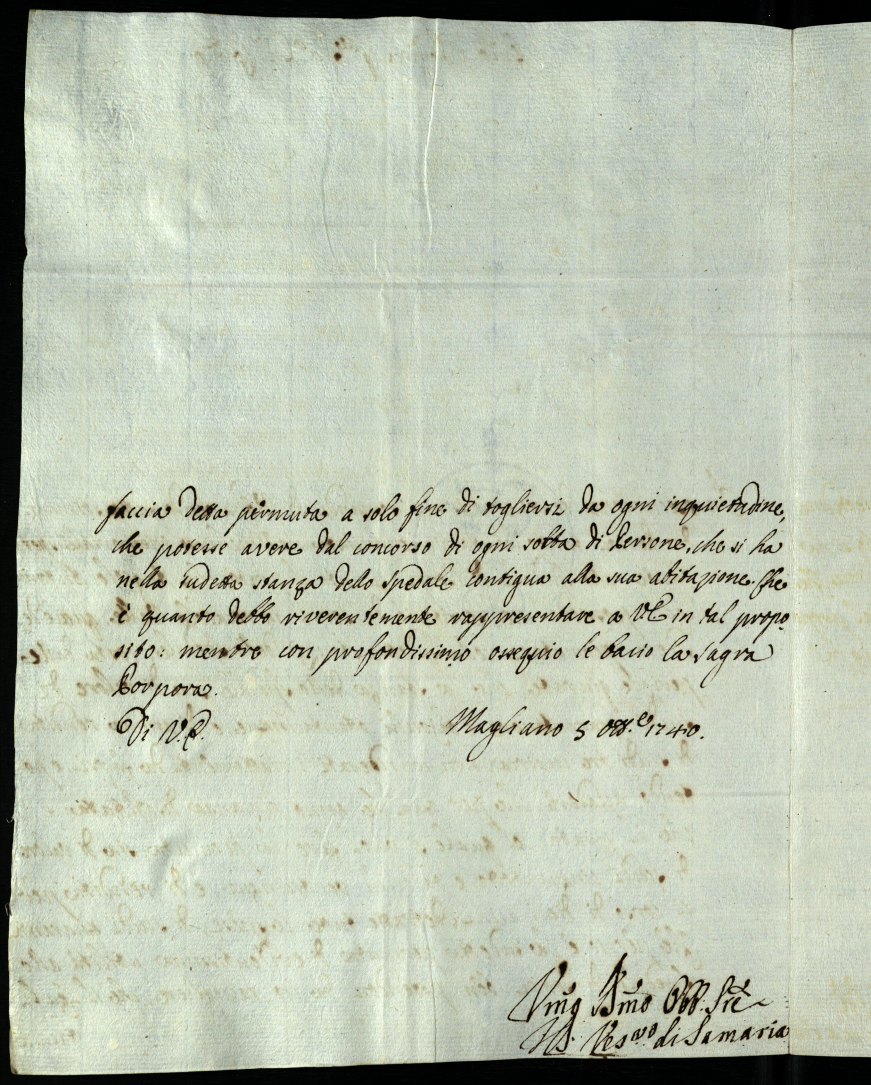 faccia detta permuta a solo fine di togliersi da ogni inquietudine,
che potesse avere dal concorso di ogni sotta di Persone, che si ha
nella sudetta stanza dello spedale contigua alla sua abitazione. Che
è quanto debbo riverentemente rappresentare a VE in tal propo-
sito: mentre con profondissimo ossequio le bacio la Sagra
Porpora.
Di V.E. Magliano 5 Ott.e 1740.
Vmo Dmo Obb. Sre
Vescvo di Samaria